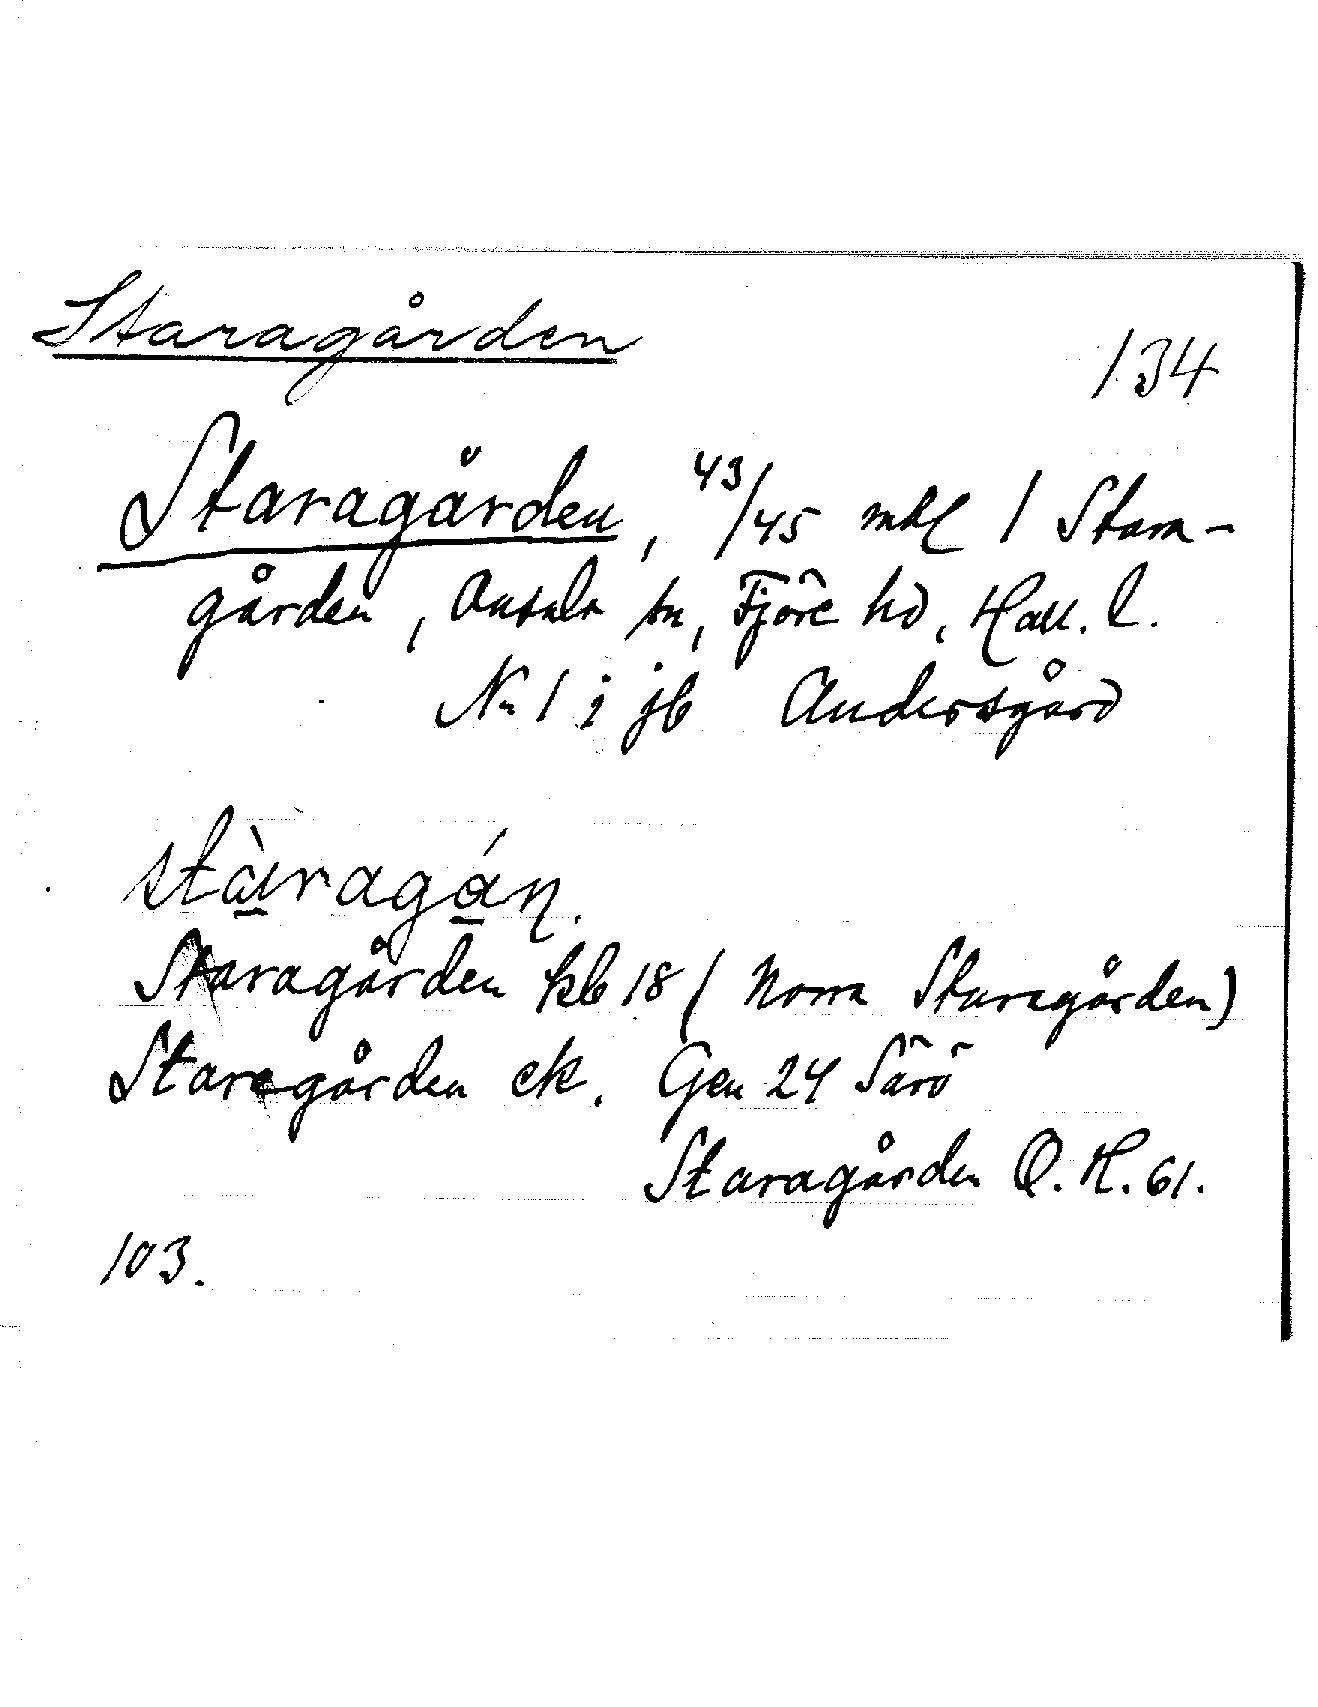 Staragården
134
Staragården, 43/45 mtl 1 Stara-
gården, Onsala sn, Fjäre hd, Hall. l.
Nr 1 i jb Andersgård
stàragán.
Staragården kb 18 (Norra Staragården)
Staragården ek. Gen 24 Särö
Staragården O.H. 61.
103.